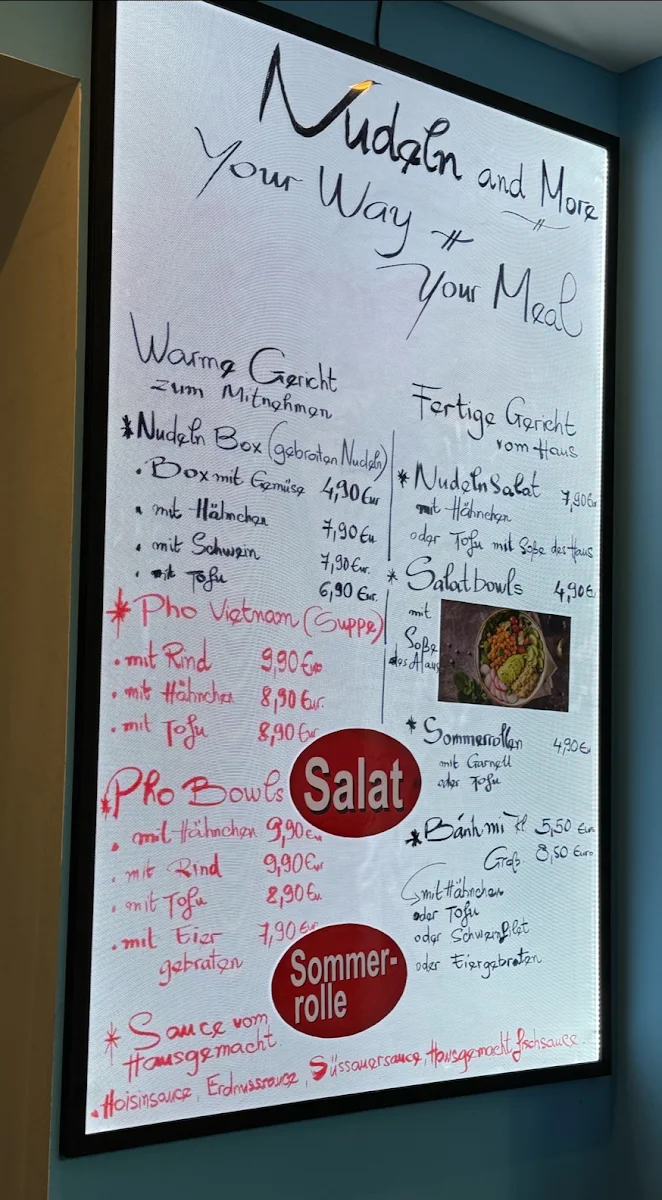 Nudeln and More
Your Way #
Your Meal
Warme Gericht
zum Mitnehmen
* Nudeln Box (gebraten Nudeln)
. Box mit Gemüse 4,90 Eur
. mit Hähnchen 7,90 Eu
. mit Schwein 7,90 Eur.
. mit Tofu 6,90 Eur.
* Pho Vietnam (Suppe)
. mit Rind 9,90 Euro
. mit Hähnchen 8,90 Eur.
. mit Tofu 8,90 Eur
* Pho Bowls
. mit Hähnchen 9,90 Eu
. mit Rind 9,90 Eur
. mit Tofu 8,90 Eu
. mit Eier 7,90 Eur
gebraten
Salat
Sommer-
rolle
Fertige Gericht
vom Haus
* Nudelnsalat 7,90 Eur
mit Hähnchen
oder Tofu mit Soße des Haus
* Salatbowls 4,90 €
mit
Soße
des Haus
* Sommerrollen 4,90 €
mit Garnell
oder Tofu
* Bánh mì Kl 5,50 Eur
Groß. 8,50 Euro
mit Hähnchen
oder Tofu
oder Schweinfilet
oder Eiergebraten
* Sauce vom
Hausgemacht
. Hoisinsauce, Erdnusssauce, Süssauersauce, Hausgemacht fischsauce.